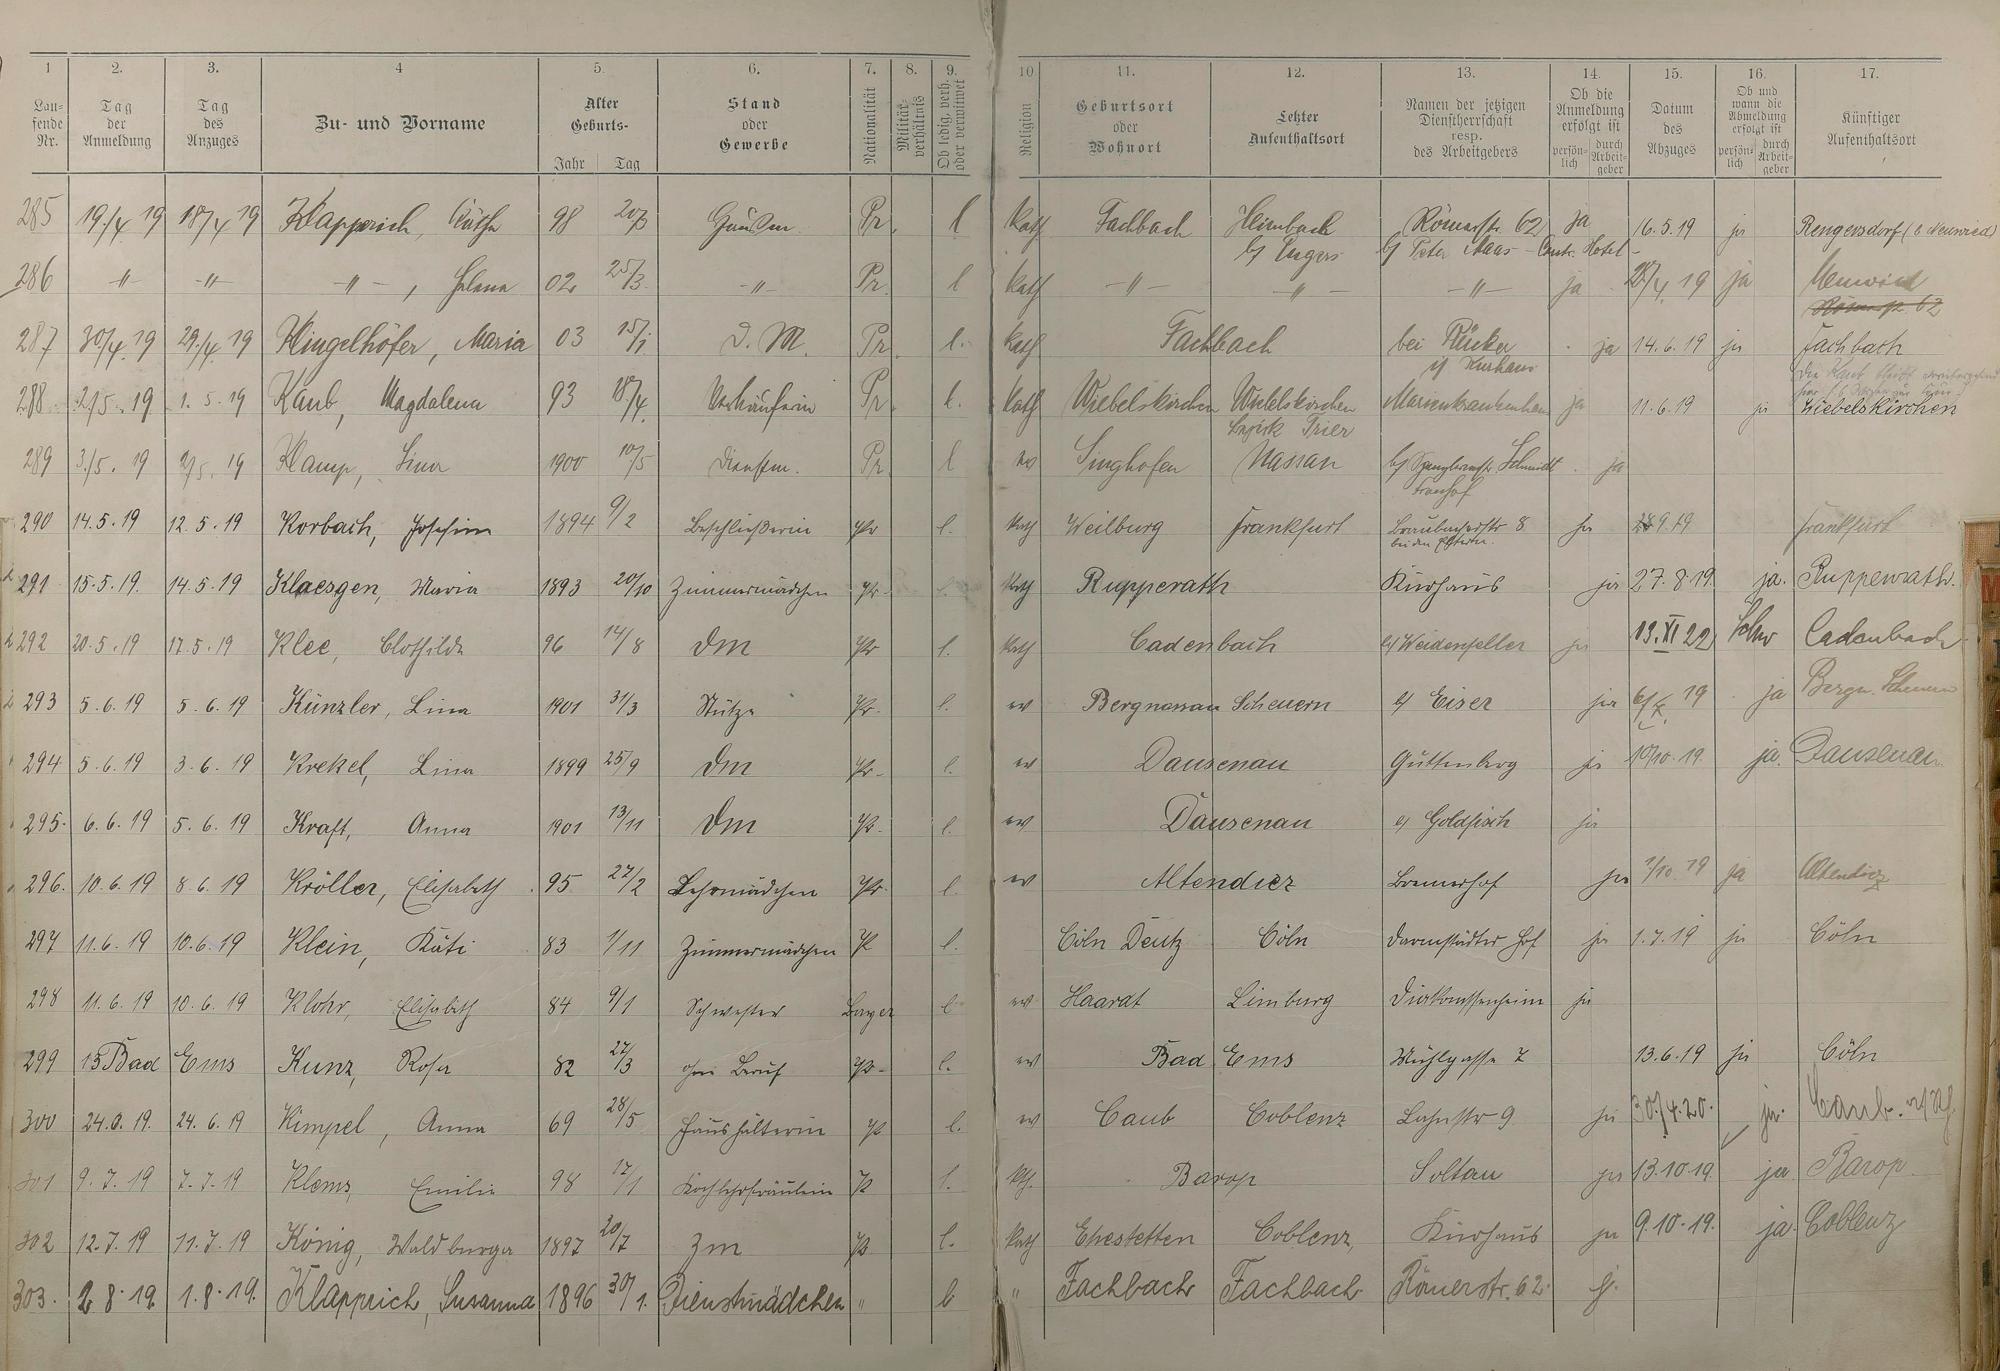 1 2. 3. 4 5. 6. 7. 8. 9. 10 11. 12. 13. 14. 15. 16. 17.
Laufende Nr. Tag der Anmeldung Tag des Anzuges Zu- und Vorname Alter Geburts- Jahr Tag Stand oder Gewerbe Nationalität Militärverhältnis Ob ledig, verh. oder verwitwet Religion Geburtsort oder Wohnort Letzter Aufenthaltsort Namen der jetzigen Dienstherrschaft resp. des Arbeitgebers Ob die Anmeldung erfolgt ist persönlich durch Arbeitgeber Datum des Abzuges Ob und wann die Abmeldung erfolgt ist persönlich durch Arbeitgeber Künftiger Aufenthaltsort
285 19./4 19 18/4 19 Klapperich, Käthe 98 20/3 Hausm. Pr. l Kath Fachbach Heimbach Römerstr. 62 ja 16.5.19 ja Rengersdorf (b Neuwied)
b/ Engers b/ Peter Maas - Contr. Hotel -
286 -"- -"- -"-, Helena 02 25/3. -"- Pr. l Kath -"- -"- -"- ja 28/4 19 ja Neuwied
Römerstr. 62
287 30/4. 19 29./4. 19 Klingelhöfer, Maria 03 15/1 D. M. Pr. l. Kath Fachbach bei Rücker ja 14.6.19 ja Fachbach
i/ Kurhaus
288 2/5. 19 1. 5. 19 Kaub, Magdalena 93 18/4. Verkäuferin Pr. l. Kath Wiebelskirchen Wiebelskirchen Marienkrankenhaus ja 11.6.19 ja Wiebelskirchen
Bezirk Trier
289 3./5. 19 2/5. 19 Klamp, Lina 1900 10/5 Dienstm. Pr. l ev Singhofen Nassau b/ Spenglermstr. Schmidt ja
290 14.5.19 12.5.19 Korbach, Josefine 1894 9/2 Beschließerin Pr l. Kath Weilburg Frankfurt Braubacherstr 8 ja 9.19 Frankfurt
bei den Eltern.
291 15.5.19. 14.5.19 Klaesgen, Maria 1893 20/10 Zimmermädchen Pr. l. Kath Rupperath Kurhaus ja 27.8.19. ja. Rupperath.
292 20.5.19 17.5.19 Klee, Clothilde 96 14/8 Dm Pr l. Kath Cadenbach b/ Weidenfeller ja 19.XI 22 Cadenbach
293 5.6.19 5.6.19 Künzler, Lina 1901 31/3 Stütze Pr. l. ev Bergnassau Scheuern b/ Eiser ja 6/X. 19 ja Bergn. Scheuern
294 5.6.19 3.6.19 Krekel, Lina 1899 25/9 Dm Pr. l. ev Dausenau Guttenberg ja 10/10.19. ja. Dausenau.
295. 6.6.19 5.6.19 Kraft, Anna 1901 13/11 Dm Pr. l. ev Dausenau b/ Goldfisch ja
296. 10.6.19 8.6.19 Kröller, Elisabeth 95 27/2 Lehrmädchen Pr. l. ev Altendiez ja 1/10.19 ja Altendiez
297 11.6.19 10.6.19 Klein, Käti 83 1/11 Zimmermädchen Pr l. Cöln Deutz Cöln Darmstädter Hof ja 1.7.19 ja Cöln
298 11.6.19 10.6.19 Klohr, Elisabeth 84 9/1 Schwester Bayer l. ev Haardt Limburg Diakonissenheim ja
299 15 Bad Ems Kunz, Rosa 82 27/3 ohne Beruf Pr. l. ev Bad Ems Mühlgasse 7 13.6.19 ja Cöln
300 24.6.19. 24.6.19 Kimpel, Anna 69 28/5 Haushälterin Pr l. ev Caub Coblenz Lahnstr 9 ja 30./4.20. ja. Caub. a/Rh.
301 9.7.19 7.7.19 Klems, Emilie 98 17/1 Kochlehrfräulein Pr l. Kth. Barop Soltau ja 13.10.19. ja Barop
302 12.7.19 11.7.19 König, Waldburga 1897 20/7 Zm Pr. l. Kath Ehestetten Coblenz, Kurhaus ja 9.10.19. ja. Coblenz
303. 2.8.19. 1.8.19. Klapprich, Susanna 1896 30/1. Dienstmädchen " l " Fachbach Fachbach Römerstr. 62.